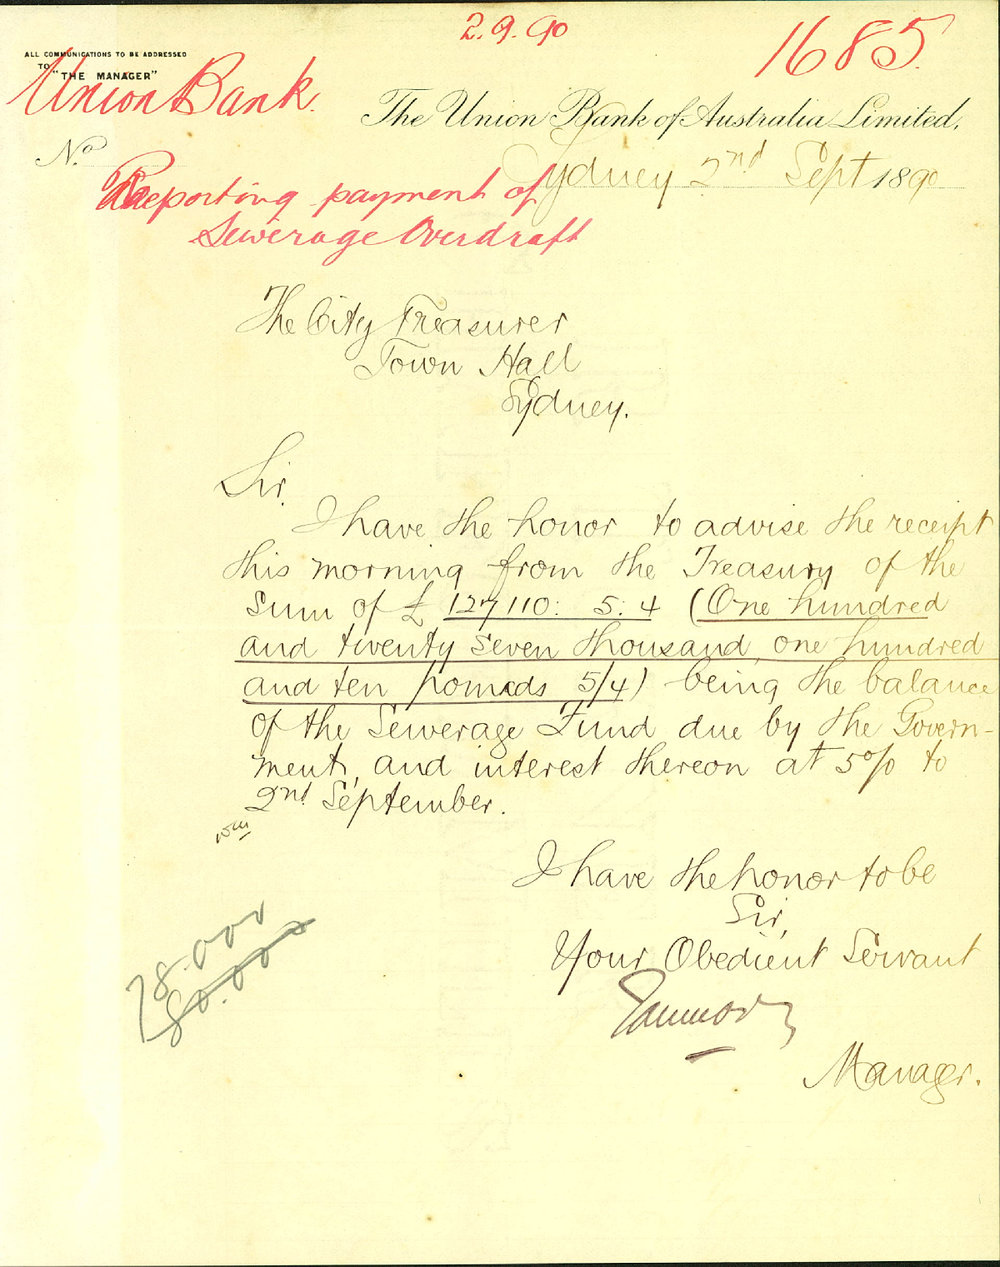 2.9.90
1685
ALL COMMUNICATIONS TO BE ADDRESSED
TO "THE MANAGER"
Union Bank.
The Union Bank of Australia Limited,
No.
Sydney 2nd Sept 1890
Reporting payment of
Sewerage Overdraft
The City Treasurer
Town Hall
Sydney.
Sir.
I have the honor to advise the receipt
this morning from the Treasury of the
sum of £ 127110: 5. 4 (One hundred
and twenty seven thousand, one hundred
and ten pounds 5/4) being the balance
of the Sewerage Fund due by the Govern-
ment, and interest thereon at 5% to
2nd September.
I have the honor to be
Sir,
Your Obedient Servant
Manager.
78.000
80.000